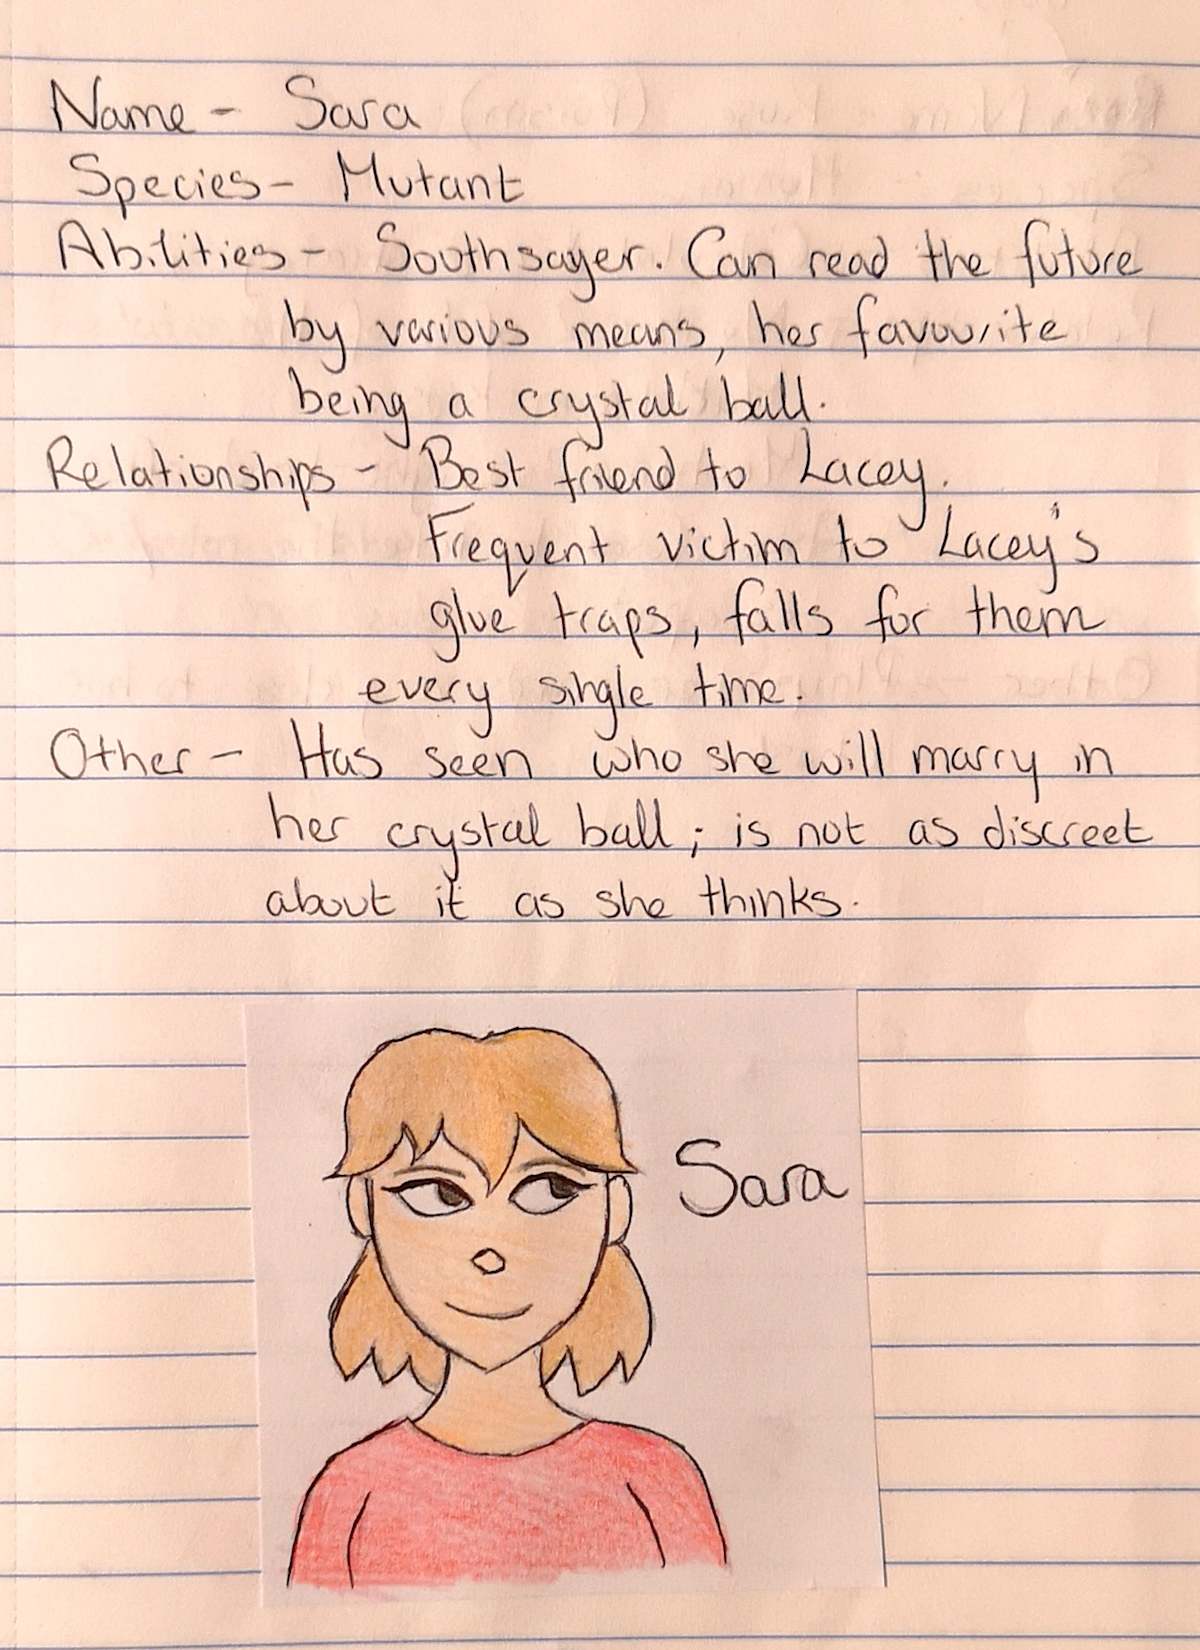 Name - Sara
Species - Mutant
Abilities - Soothsayer. Can read the future
by various means, her favourite
being a crystal ball.
Relationships - Best friend to Lacey.
Frequent victim to Lacey's
glue traps, falls for them
every single time.
Other - Has seen who she will marry in
her crystal ball; is not as discreet
about it as she thinks.
Sara